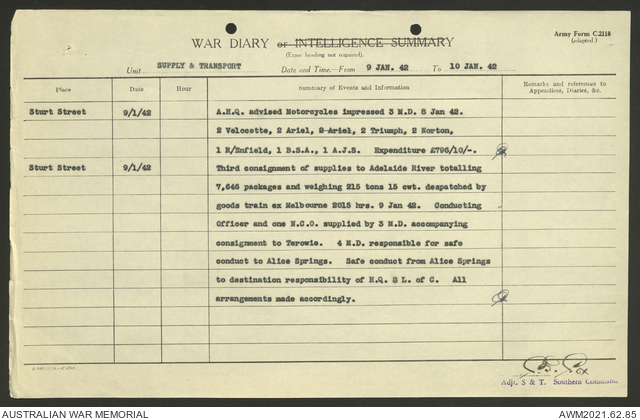 Army Form C.2118
(adapted.)
WAR DIARY or INTELLIGENCE SUMMARY
(Erase heading not required).
Unit SUPPLY & TRANSPORT Date and Time.—From 9 JAN. 42 To 10 JAN. 42
Place Date Hour Summary of Events and Information Remarks and references to Appendices, Diaries, &c.
Sturt Street 9/1/42 A.H.Q. advised Motorcycles impressed 3 M.D. 8 Jan 42.
2 Velocette, 2 Ariel, 2 Ariel, 2 Triumph, 2 Norton,
1 R/Enfield, 1 B.S.A., 1 A.J.S. Expenditure £796/10/-.
Sturt Street 9/1/42 Third consignment of supplies to Adelaide River totalling
7,646 packages and weighing 215 tons 15 cwt. despatched by
goods train ex Melbourne 2015 hrs. 9 Jan 42. Conducting
Officer and one N.C.O. supplied by 3 M.D. accompanying
consignment to Terowie. 4 M.D. responsible for safe
conduct to Alice Springs. Safe conduct from Alice Springs
to destination responsibility of H.Q. 8 L. of C. All
arrangements made accordingly.
Adjt. S & T. Southern Command
AUSTRALIAN WAR MEMORIAL AWM2021.62.85